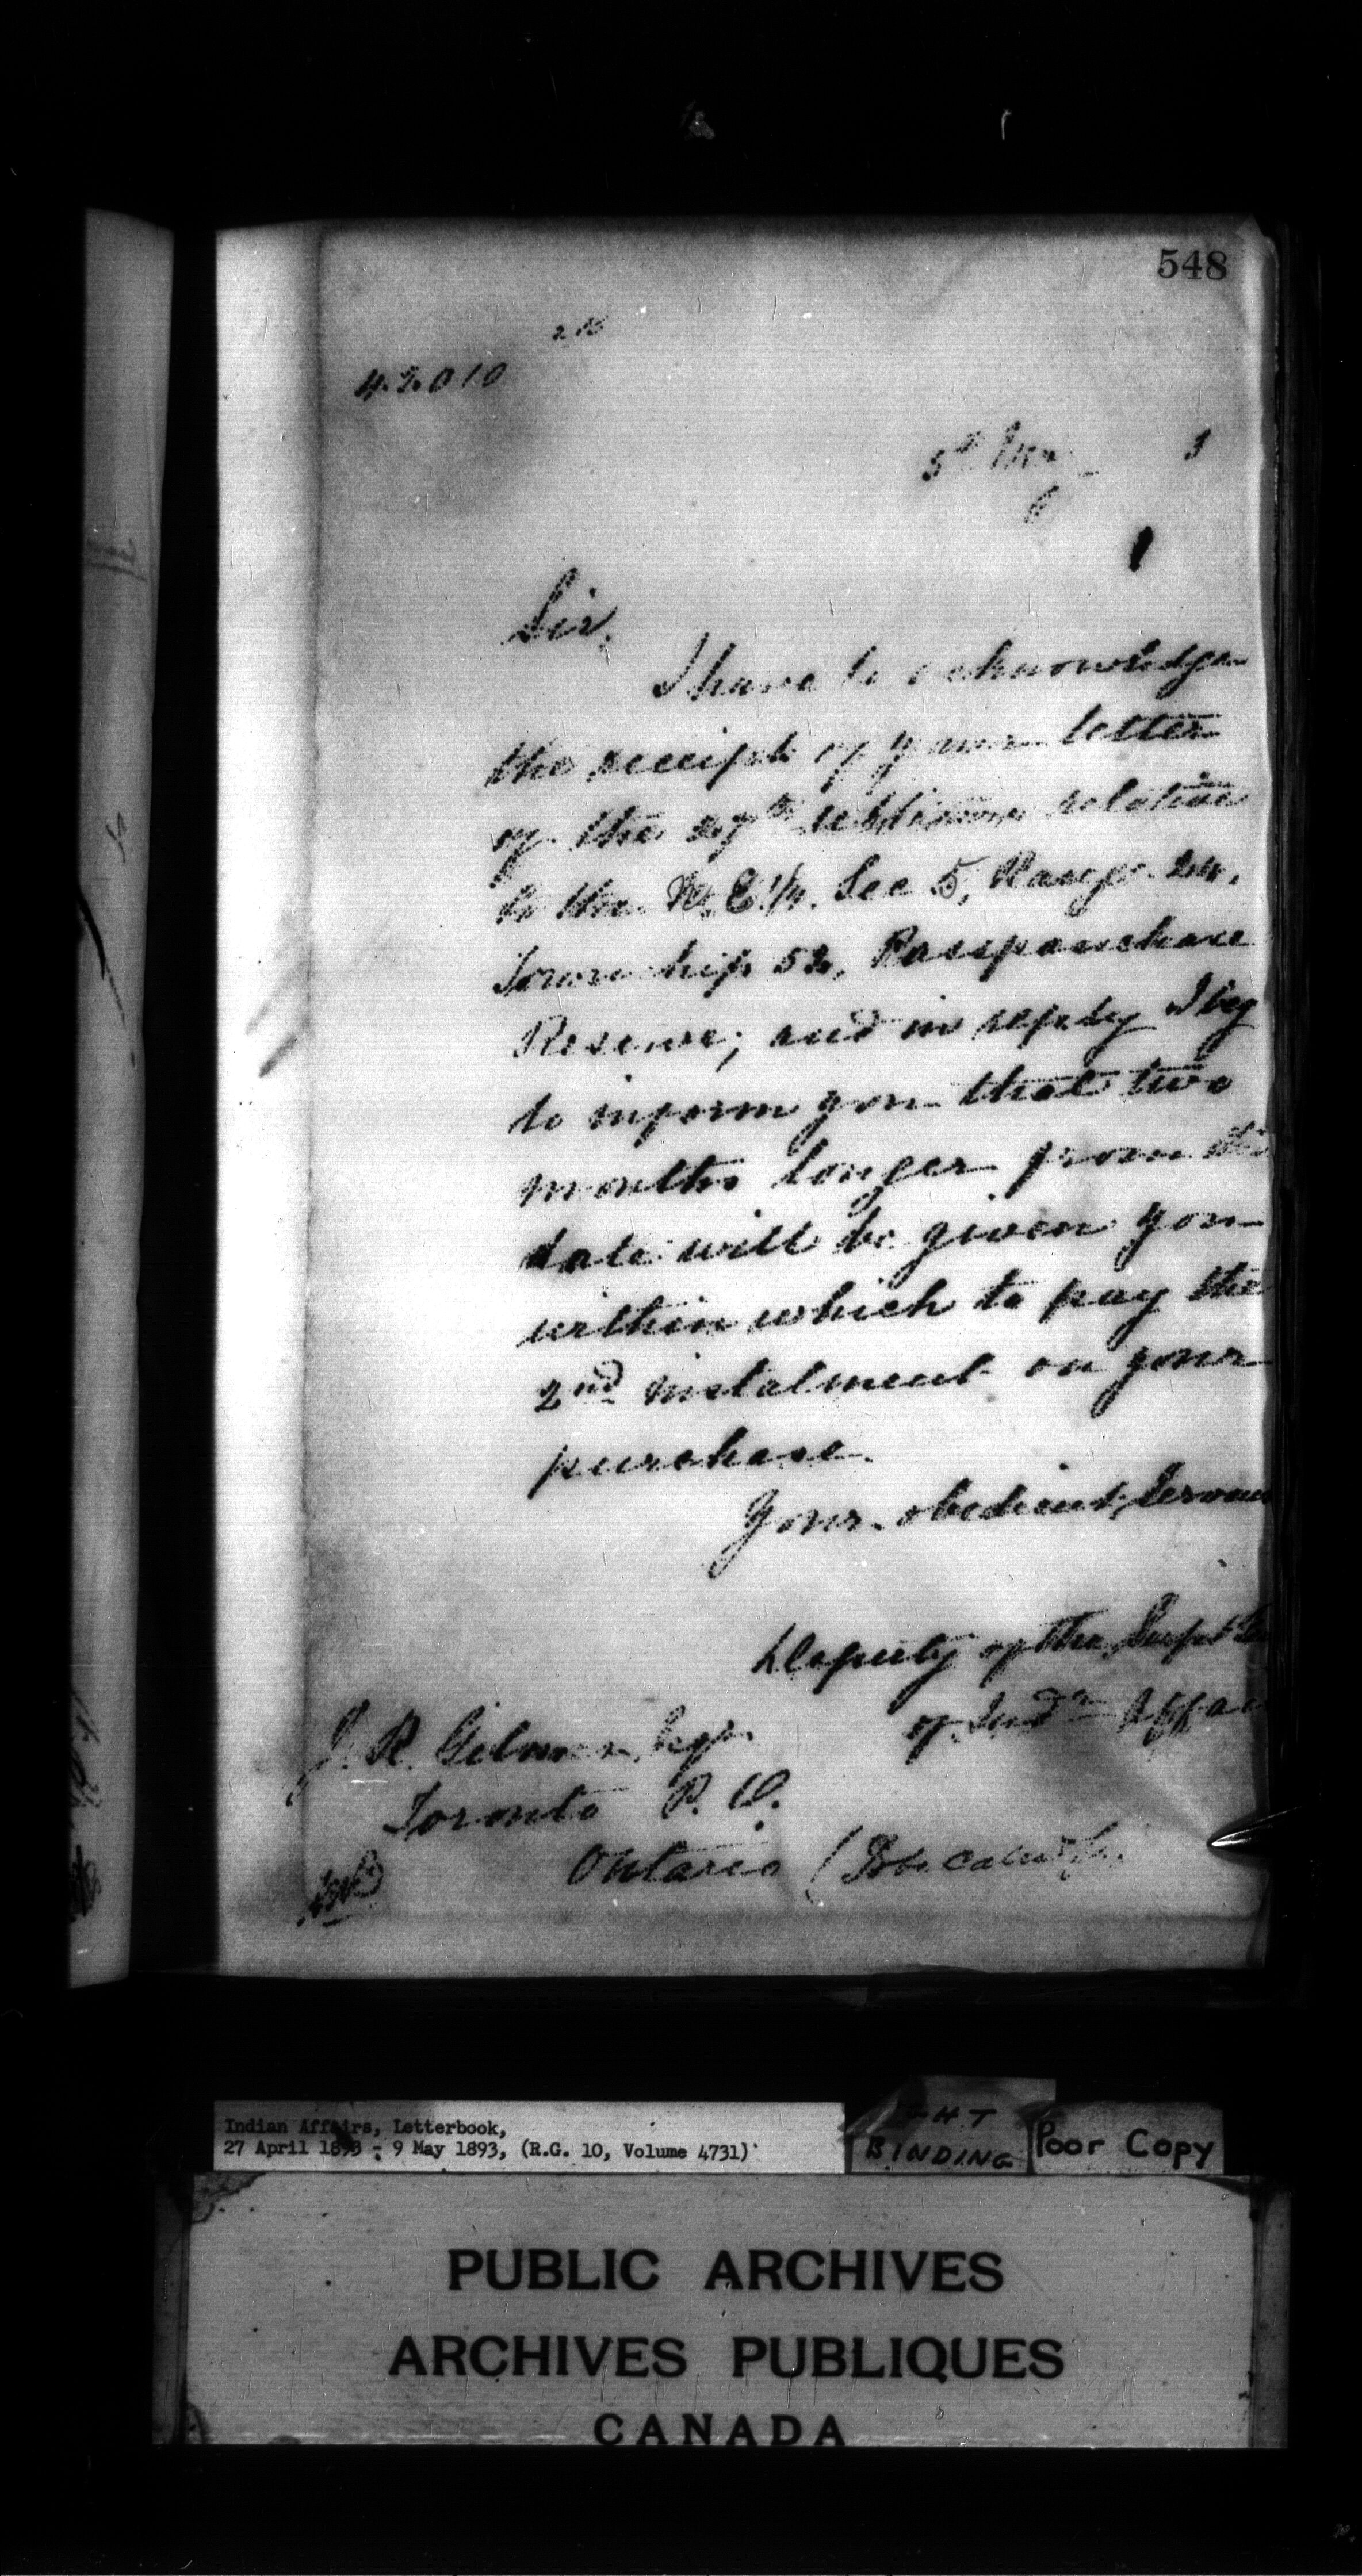 548
42010
5th May 3
Sir,
I have to acknowledge
the receipt of your letter
of the 27th ultimo relative
to the N.E. 1/4. Sec 5, Range 24,
Township 52, Passpasschase
Reserve; and in reply I beg
to inform you that two
months longer from
date will be given you
within which to pay the
2nd instalment on your
purchase.
Your obedient Servan
Deputy of the Supt
of Indn Affai
J. R. Esqr.
Toronto P. O.
Ontario
Indian Affairs, Letterbook,
27 April 1893 - 9 May 1893, (R.G. 10, Volume 4731)
GHT
BINDING
Poor Copy
PUBLIC ARCHIVES
ARCHIVES PUBLIQUES
CANADA